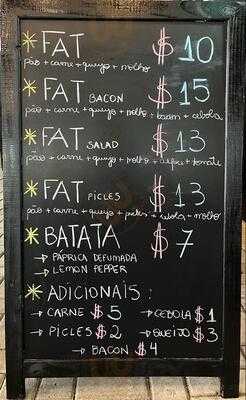 * FAT $ 10
pão + carne + queijo + molho
* FAT BACON $ 15
pão + carne + queijo + molho + bacon + cebola
* FAT SALAD $ 13
pão + carne + queijo + molho + alface + tomate
* FAT PICLES $ 13
pão + carne + queijo + picles + cebola + molho
* BATATA $ 7
→ PÁPRICA DEFUMADA
→ LEMON PEPPER
* ADICIONAIS:
→ CARNE $ 5 → CEBOLA $ 1
→ PICLES $ 2 → QUEIJO $ 3
→ BACON $ 4